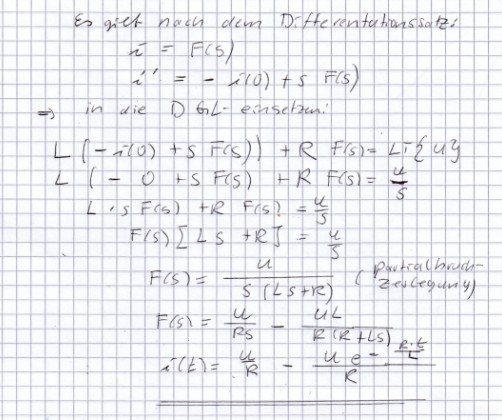 Es gilt nach dem Differentationssatz:
i = F(s)
i' = - i(0) + s F(s)
=> in die DGL einsetzen:
L (-i(0) + s F(s)) + R F(s) = LT{u}
L (- 0 + s F(s) + R F(s) = u/s
L · s F(s) + R F(s) = u/s
F(s) [Ls + R] = u/s
F(s) = u / s (Ls+R) (Partialbruch-
zerlegung)
F(s) = u/Rs - uL / R(R+Ls)
i(t) = u/R - u e - R·t/L / R